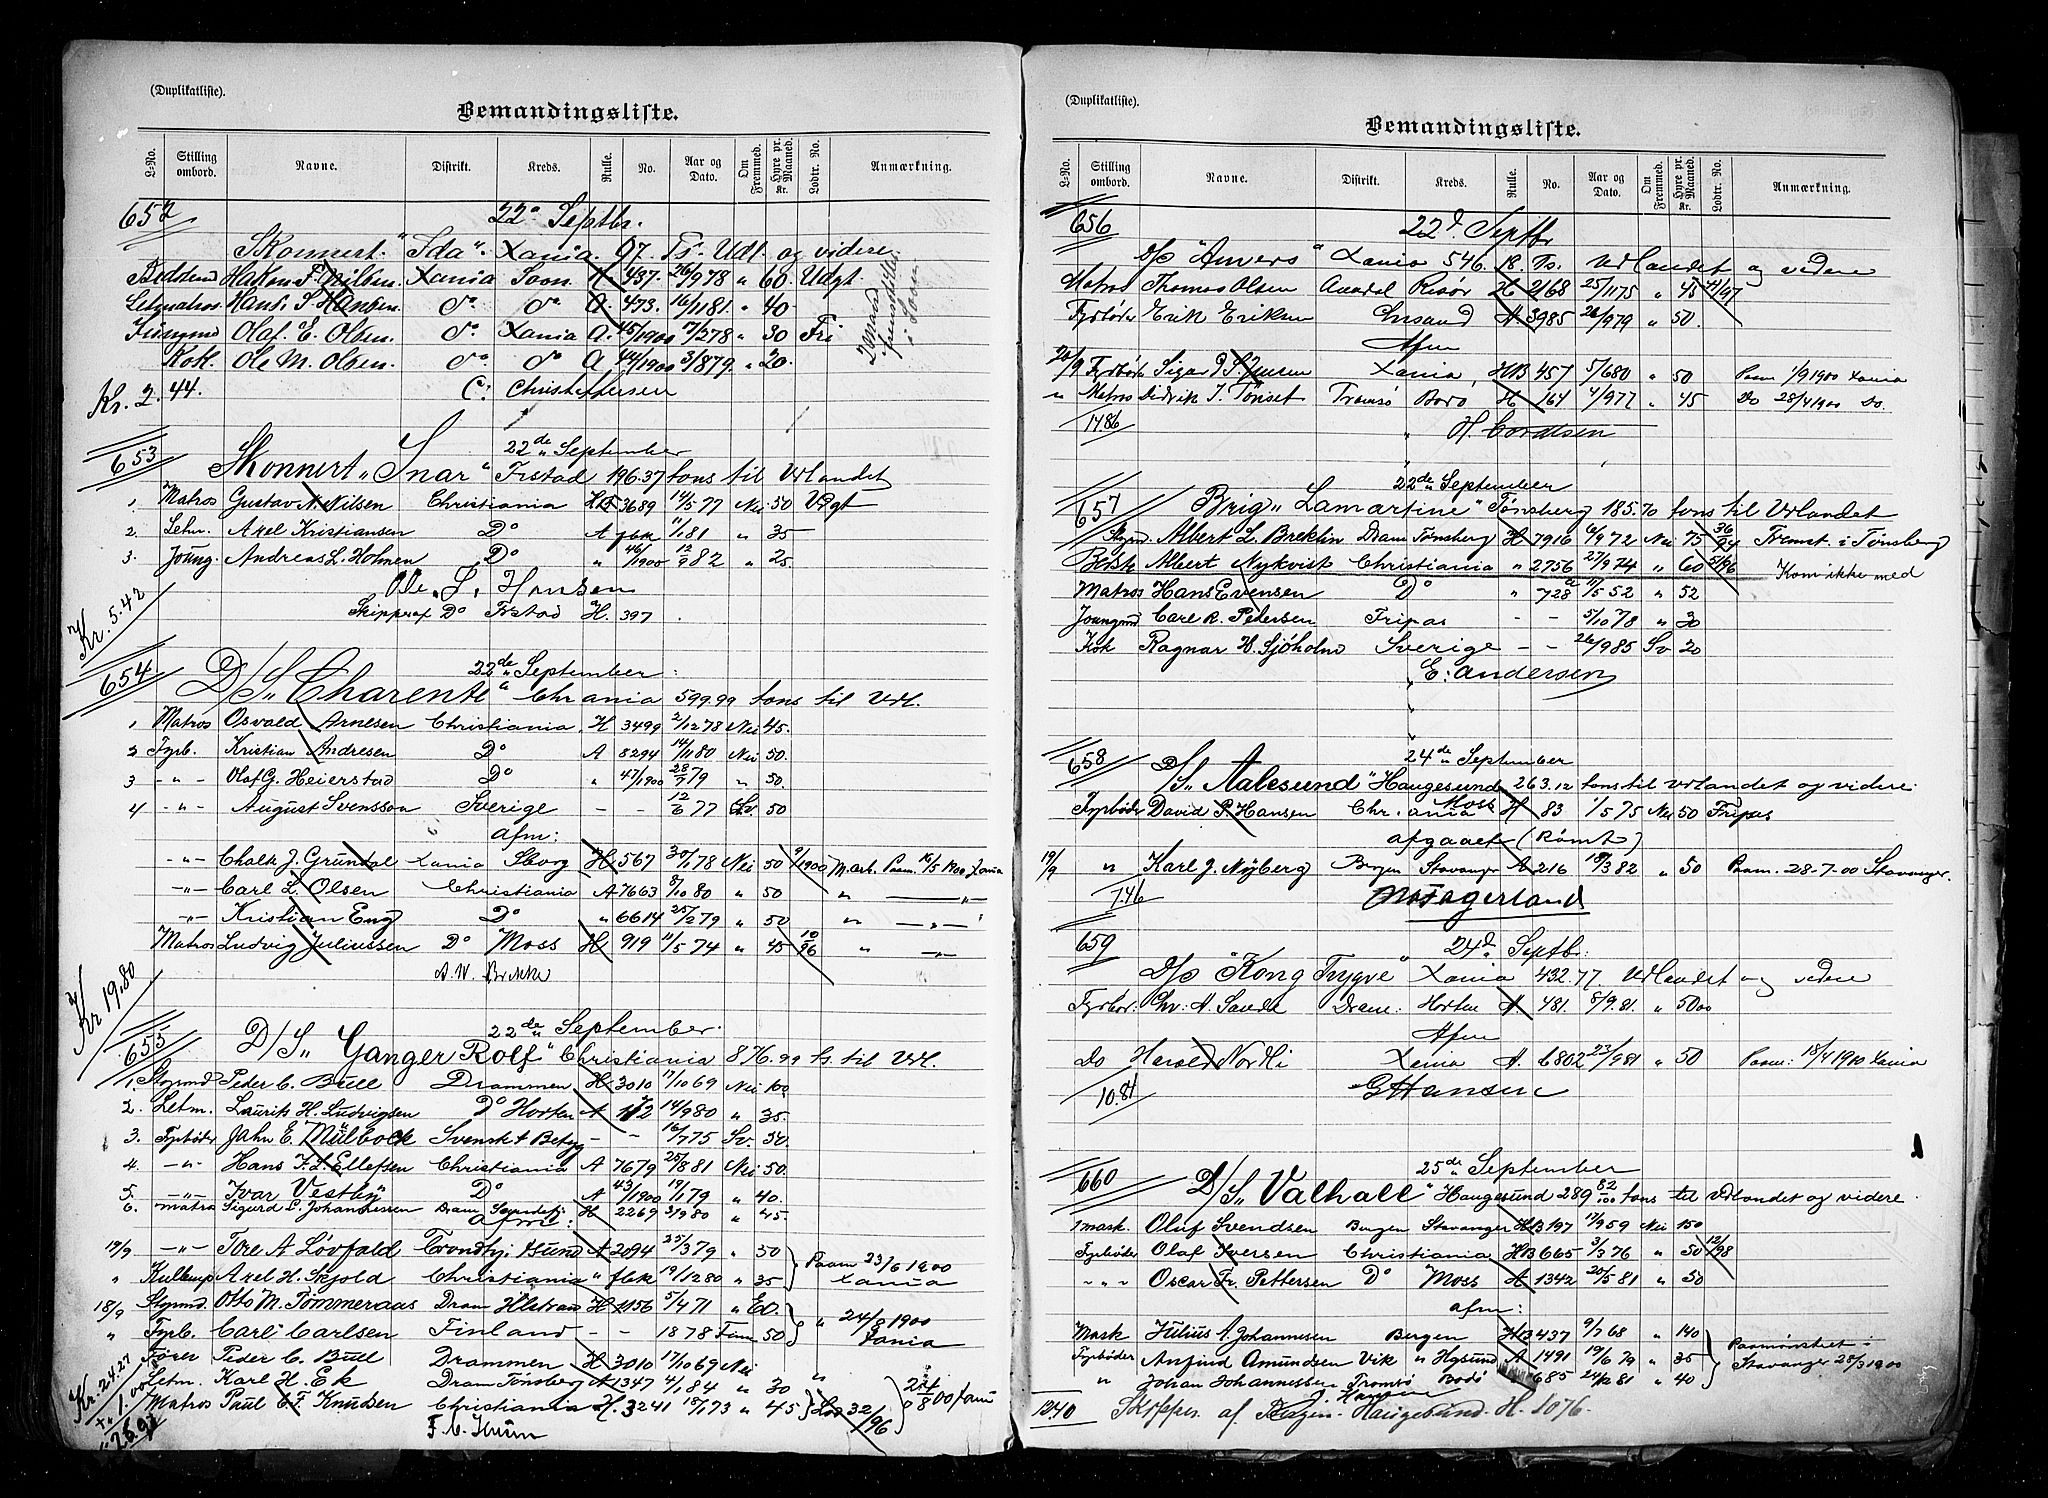 (Duplikatliste).
Bemandingsliste.
L-No. Stilling ombord. Navne. Distrikt. Kreds. Rulle. No. Aar og Dato. Om Fremmed. Hyre pr. Maaned. Kr. Lodtr. No. Anmærkning.
652 22° Septbr.
Skonnert "Ida" Xania 97. Ts. Udl og videre
Bedstmd Hakon F. Nilsen. Xania Soon H 437. 26/9 78 " 60 Udgt.
Letmatros Hans S Hansen. do do A 473. 16/11 81. " 40
Jungmd Olaf E. Olsen. do Xania A. 45/1900 17/2 78 " 30 Fri
Kok. Ole M. Olsen. do do A 44/1900 3/8 79. " 20.
2 Maad forudbetalt i Soon
Kr. 2.44. C. Christophersen
653 22de September
Skonnert "Snar" Frstad 196.37 tons til Udlandet
1, Matros Gustav N. Nilsen Christiania H 3689 14/5 77 Nei 50 Udgt
2. Letm. Axel Kristiansen Do A fbk 11/1 81 " 35
3. Joung. Andreas L. Holmen Do " 46/1900 12/9 82 " 25
Ole. L. Hansen
Skipper af Do Frstad H. 397
Kr. 5.42
654 22de September
D/S "Charente" Chrania 599.99 tons til Udl.
1, Matros Osvald Arnesen Christiania H 3499 2/12 78 Nei 45.
2 Fyrb. Kristian Andresen Do A 8294 14/11 80 Nei 50.
3 -"- Olaf G. Heierstad Do " 47/1900 28/7 79 " 50.
4 -"- August Svensson Sverige - - 12/6 77 Sv. 50
afm:
-"- Chalk J. Grundal Xania Sborg H 567 30/1 78 Nei 50 9/1900 M.arb. Paam. 16/5 1900 Xania
-"- Carl L. Olsen Christiania A 7663 8/10 80 " 50 " "
-"- Kristian Eng Do " 6614 25/2 79 " 50 " -"-
Matros Ludvig Juliussen Do Moss H 919 11/5 74 " 45 10/96 " -"-
A. W. Brekke
Kr 19.80
655 22de September.
D/S "Ganger Rolf" Christiania 876.99 ts. til Udl.
1, Stgrmd Peder C. Bull Drammen H 3010 17/10 69 Nei 100
2. Letm. Laurits H. Ludvigsen Do Horten A 172 14/9 80 " 35.
3. Fyrbøder Jahn E. Mulbock Svensk + Betyg - - 16/7 75 Sv. 50.
4. -"- Hans F. L. Ellefsen Christiania A 7679 25/8 81 Nei 50.
5. -"- Ivar Vestby Do A 43/1900 19/1 79 " 40.
6. matros Sigurd L. Johannessen Dram H 2269 3/9 80 " 45.
afm:
19/9 -"- Tore A Løvfald Trondhj. A 2094 25/3 79 " 50 Paam 23/6 1900
" Kullemp Axel H. Skjold Christiania " fbk 19/12 80 " 35 Xania
18/9 Stgrmd. Otto M. Tømmeraas Dram Hlstrand H 1156 5/4 71 " 80. " 24/8 1900
" Fyrb. Carl Carlsen Finland - - 1878 Fin 50 Xania
Fører Peder C. Bull Drammen H 3010 17/10 69 Nei "
Letm. Karl H. Ek Dram Tønsberg A 1347 4/1 84 " 30 24/8 00 Xania
Matros Paul C. F. Knudsen Christiania H. 3241 18/1 73 " 45 32/96
Kr. 24.27
+ " 1.00
F. C. Husm
(Duplikatliste).
Bemandingsliste.
L-No. Stilling ombord. Navne. Distrikt. Kreds. Rulle. No. Aar og Dato. Om Fremmed. Hyre pr. Maaned. Kr. Lodtr. No. Anmærkning.
656 22d Septbr
D/S "Anvers" Xania 546.18. Ts. Udlandet og videre
Matros Thomas Olsen Arendal Risør H 2168 25/11 75 " 45 41/97
Fyrbøder Erik Eriksen Chrsand A 3985 26/9 79 " 50.
Afm
20/9 Fyrbøder Sigard S. Jensen Xania, HB 457 5/6 80 " 50 Paam 1/9 1900 Xania
" Matros Didrik J. Tønset Tromsø Bodø H 164 4/9 77 " 45 Do 28/4 1900 Do.
14.86 H. Cordtsen
22de September
657 Brig "Lamartine" Tønsberg 185.70 tons til Udlandet
Stgrmd. Albert L. Brektin Dram Tønsberg H 7916 6/9 72 Nei 75 36/94 Fremst. i Tønsberg
Bedstm Albert Nykvist Christiania " 2756 27/9 74 " 60 31/96 Kom ikke med
Matros Hans Evensen Do " 728 a 11/5 52 " 52
Joungmd Carl R. Pedersen Fripas - - 5/10 78 " 30
Kok Ragnar W. Sjøholm Sverige - - 26/9 85 Sv 20
E. Andersen
658 24de September
D/S "Aalesund" Haugesund 263.12 tons til Udlandet og videre.
Fyrbøder David P. Hansen Chr.ania Moss H 83 1/5 75 Nei 50 Fripas
afgaaet (Rømt)
19/9 " Karl J. Nyberg Bergen Stavanger A 216 10/3 82 " 50 Paam. 28-7-00 Stavanger.
7.46
659 24d Septbr.
D/S "Kong Trygve" Xania 432.77. Udlandet og videre
Fyrbør: Chr: A Sande Dram: Horten A. 481. 8/9. 81. " 50 00
Afm
do Harald Nordli Xania A. 6802 23/9 81 " 50 Paam: 18/4 1900 Xania
10.81 G Hansen
660 25de September
D/S "Valhall" Haugesund 289 82/100 tons til Udlandet og videre
1 mask. Oluf Svendsen Bergen Stavanger HB 197 17/9 59 Nei 150
Fyrbøder Olaf Iversen Christiania HB 665 3/3 76 " 50 12/98
" " " Oscar Fr. Pettersen Do Moss A 1342 20/5 81 " 50
afm:
Mask Julius A. Johannesen Bergen HB 437 9/7 68 " 140 Paamønstret i
Fyrbøder Anfind Amundsen Vik " Hgsund A 1491 19/6 79 " 35 Stavanger 28/3 1900
" Johan Johannessen Tromsø Bodø 685 24/12 81 " 40
J. Hansen
1240 Skipper af Bergen-Haugesund. H. 1076.